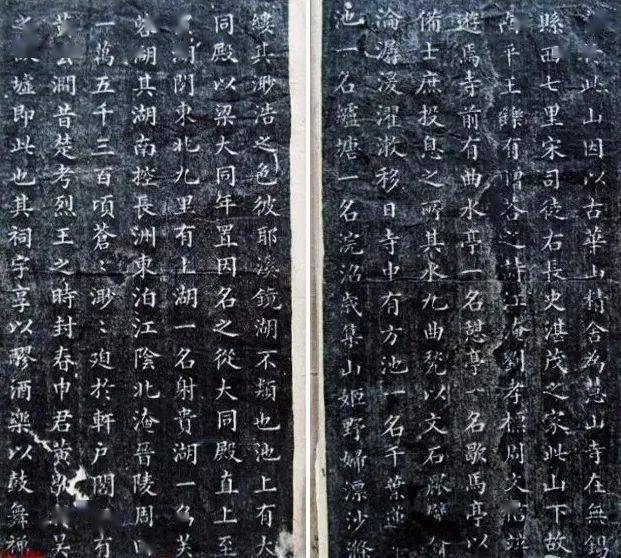 此山因以古華山精舍為慧山寺在無錫
縣西七里宋司徒右長史湛茂之家此山下故
南平王鑠有贈答之詩江淹劉孝標周文信並
遊焉寺前有曲水亭一名憩亭一名歇馬亭以
備士庶投息之所其水九曲甃以文石
淪潺湲濯漱移日寺中有方池一名千葉蓮
池一名壚塘一名浣沼歲集山姬野婦漂沙滌
縷其渺浩之色彼耶溪鏡湖不類也池上有大
同殿以梁大同年置因名之從大同殿直上至
湖閣東北九里有上湖一名射貴湖一名芙
蓉湖其湖南控長洲東泊江陰北淹晉陵周
一萬五千三百頃蒼〻渺〻迫於軒戶閣有
公澗昔楚考烈王之時封春申君黃吳
之墟即此也其祠宇享以醪酒樂以鼓舞禪